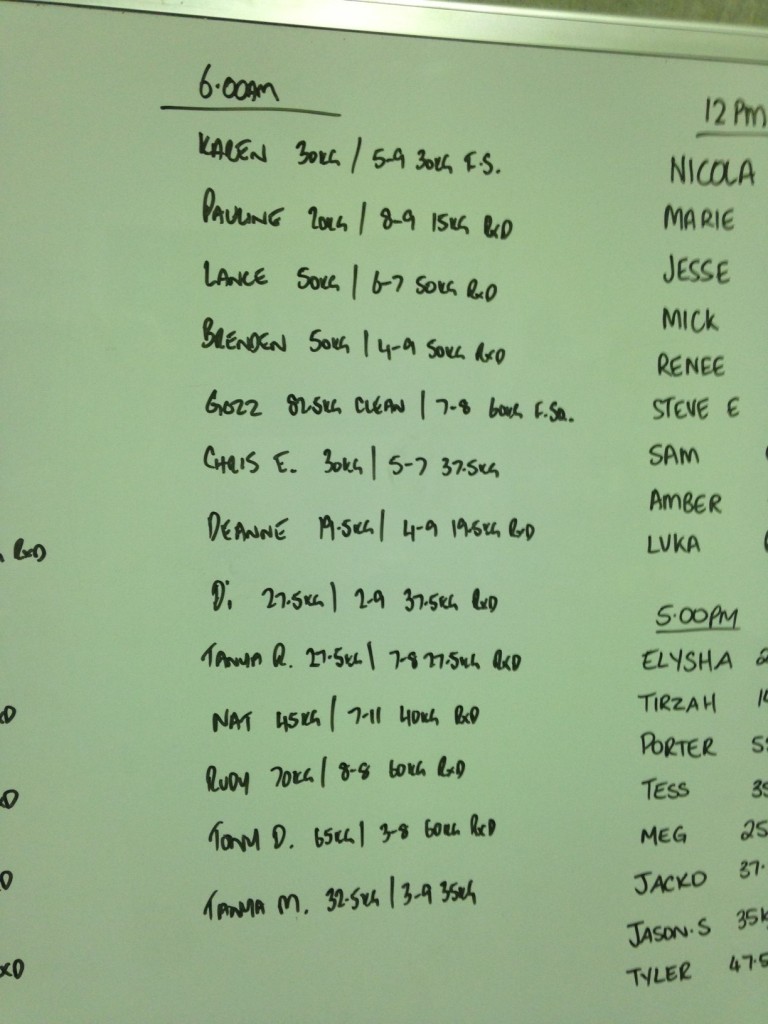 6.00AM
KAREN 30KG / 5-9 30KG F.S.
PAULINE 20KG / 8-9 15KG RxD
LANCE 50KG / 6-7 50KG RxD
BRENDEN 50KG / 4-9 50KG RxD
GOZZ 82.5KG CLEAN / 7-8 60KG F.SQ.
CHRIS E. 30KG / 5-7 37.5KG
DEANNE 19.5KG / 4-9 19.5KG RxD
Di 27.5KG / 2-9 37.5KG RxD
TANYA R. 27.5KG / 7-8 27.5KG RxD
NAT 45KG / 7-11 40KG RxD
RUDY 70KG / 8-8 60KG RxD
TONY D. 65KG / 3-8 60KG RxD
TANYA M. 32.5KG / 3-9 35KG
12 PM
NICOLA
MARIE
JESSE
MICK
RENEE
STEVE E
SAM
AMBER
LUKA
5.00PM
ELYSHA 2
TIRZAH
PORTER 5
TESS 35
MEG 25
JACKO 37.
JASON.S 35K
TYLER 47.5
RxD
D
D
D
xD